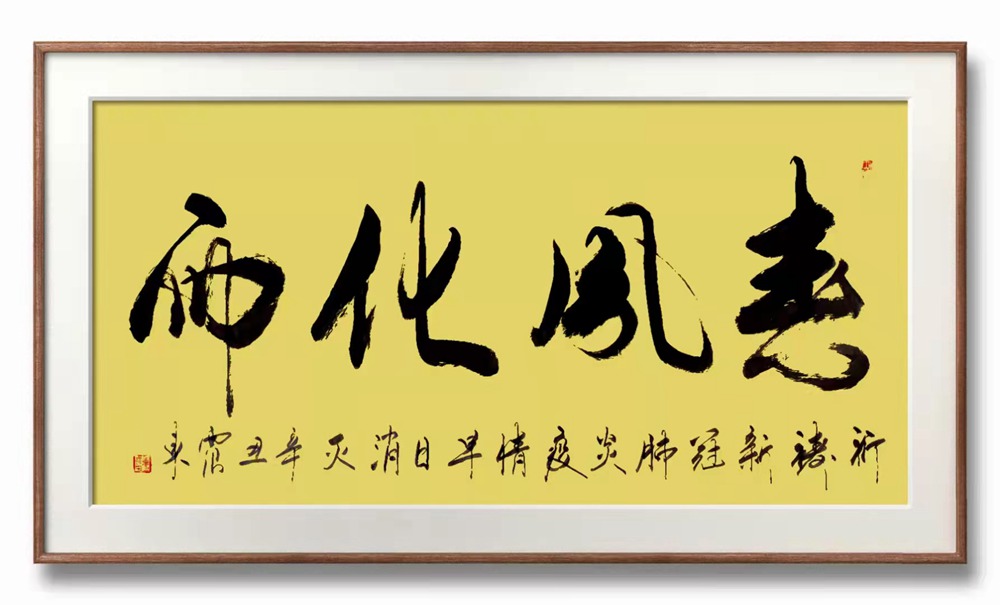 春风化雨
祈祷新冠肺炎疫情早日消灭辛丑震东